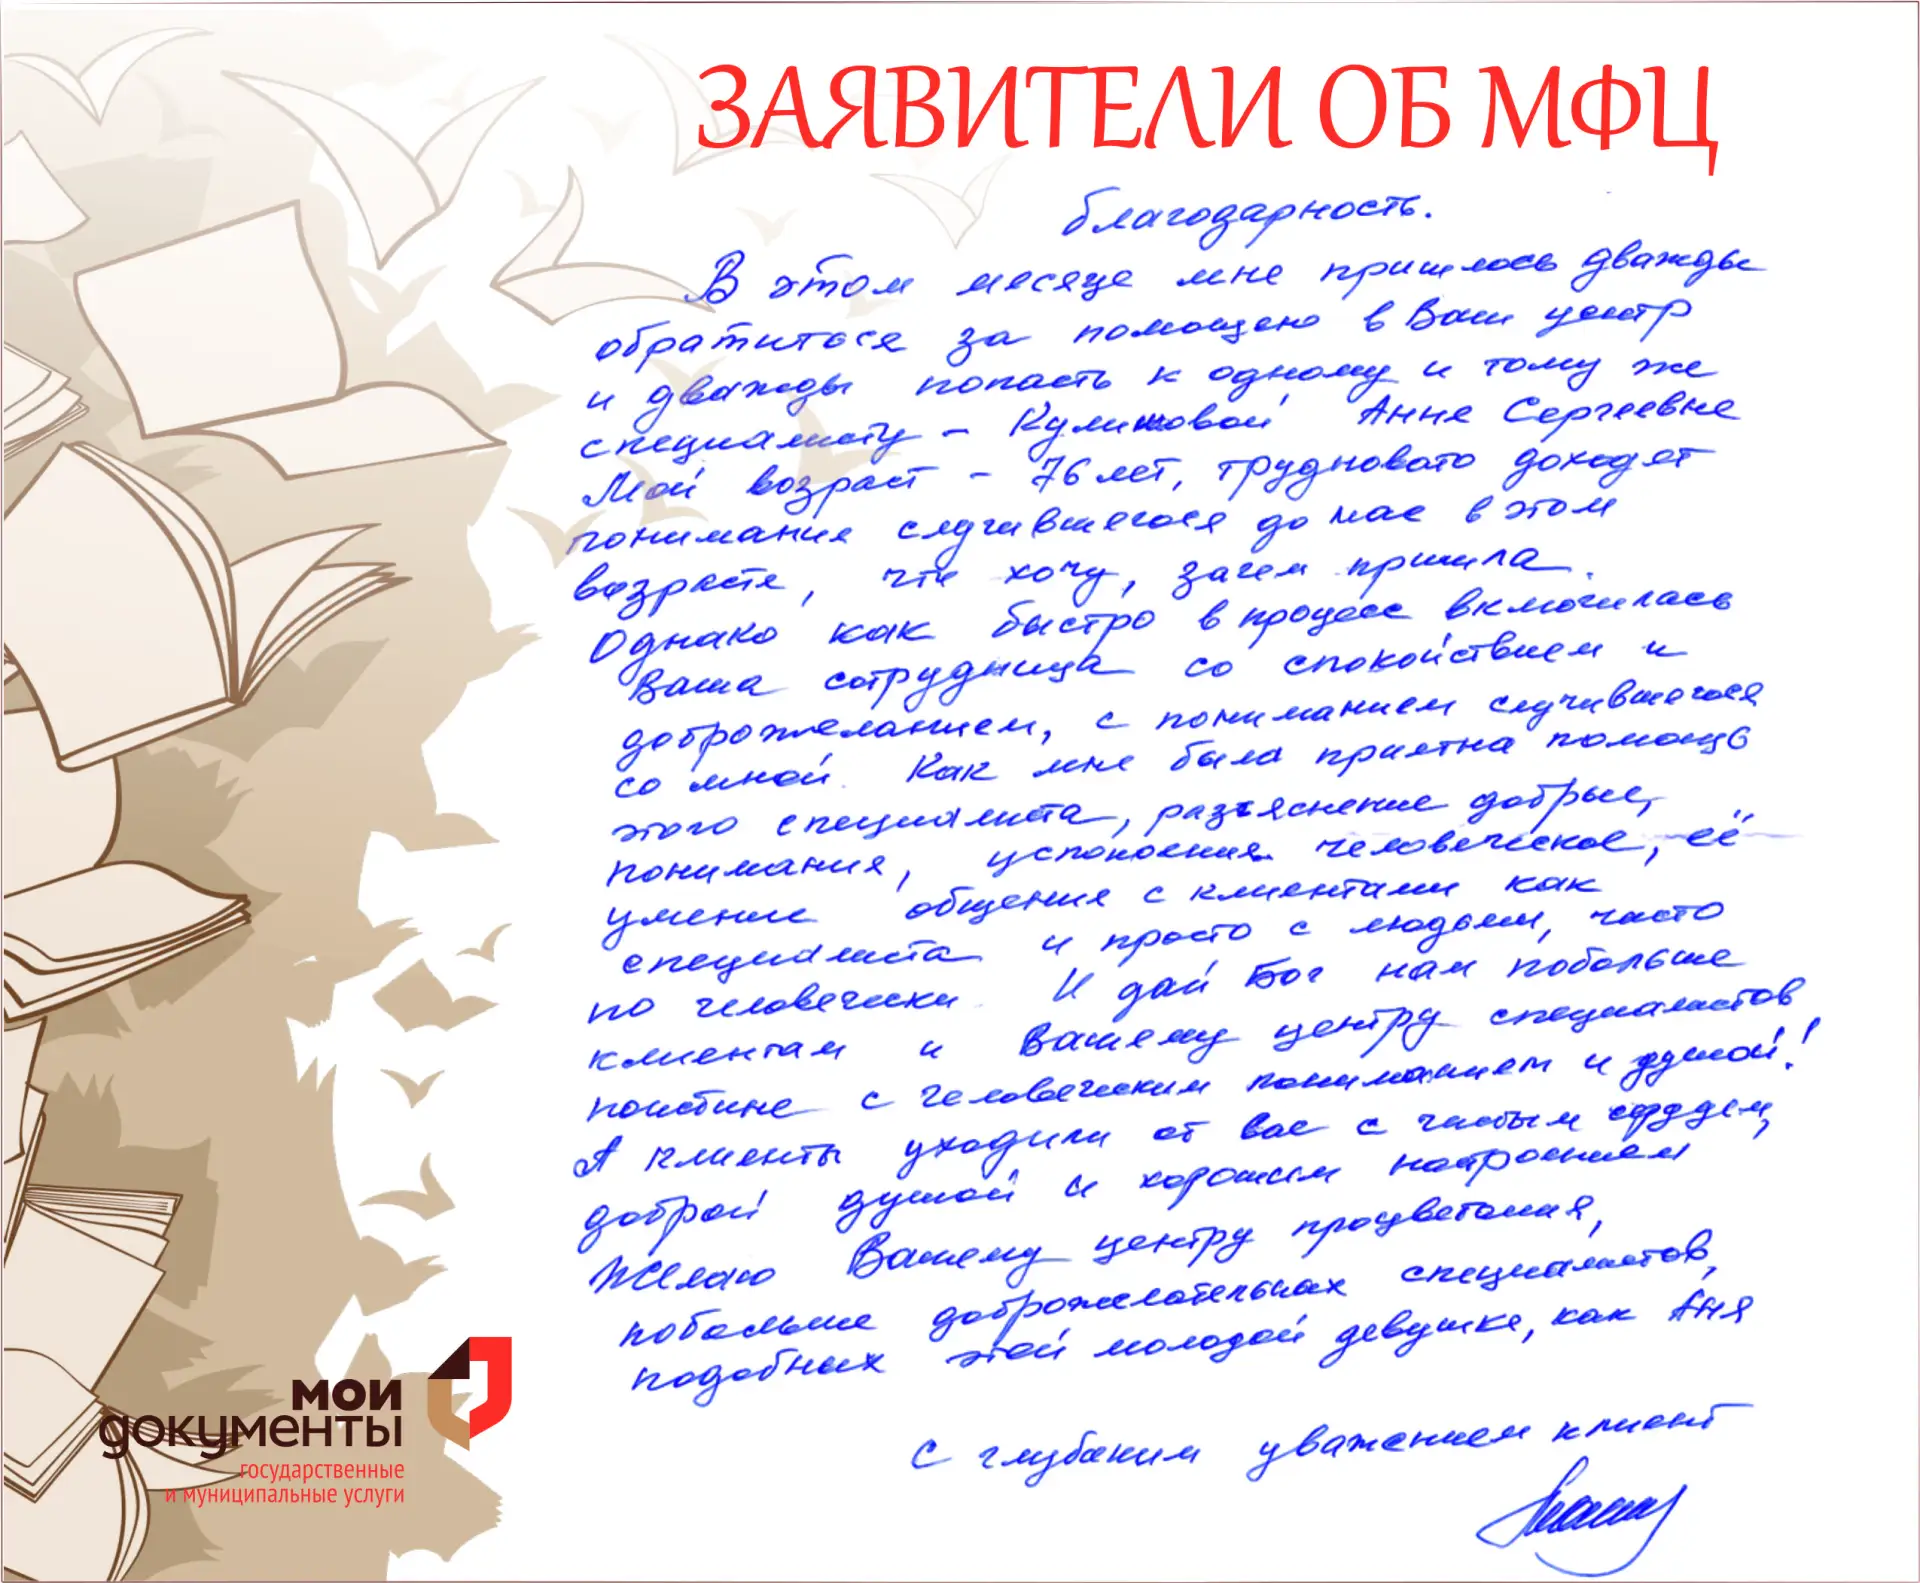 ЗАЯВИТЕЛИ ОБ МФЦ
Благодарность.
В этом месяце мне пришлось дважды
обратиться за помощью в Ваш центр
и дважды попасть к одному и тому же
специалисту - Анне Сергеевне
Мой возраст - 76 лет, трудновато доходят
понимание случившегося до нас в этом
возрасте, что хочу, зачем пришла.
Однако как быстро в процесс включилась
Ваша сотрудница со спокойствием и
доброжеланием, с пониманием случившегося
со мной. Как мне была приятна помощь
этого специалиста, разъяснение добрые,
понимания, успокоения человеческое, её
умение общения с клиентами как
специалиста и просто с людьми, часто
по человечески. И дай Бог нам побольше
клиентам и Вашему центру специалистов
поистине с человеческим пониманием и душой!
А клиенты уходили от вас с чистым сердцем,
доброй душой и хорошим настроением
Желаю Вашему центру процветания,
побольше доброжелательных специалистов,
подобных этой молодой девушке, как Аня
С глубоким уважением клиент
мои
документы
государственные
и муниципальные услуги